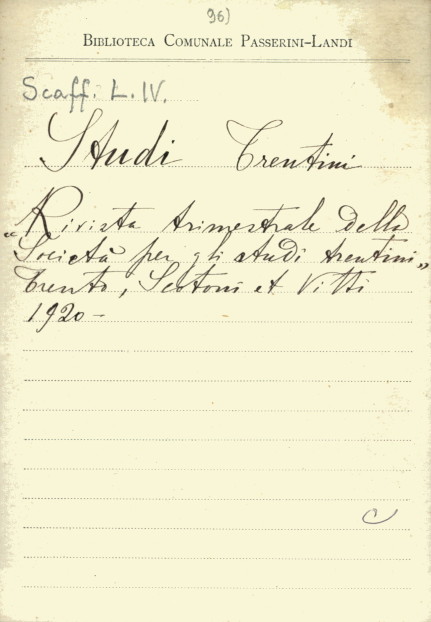 96)
BIBLIOTECA COMUNALE PASSERINI-LANDI
Scaff. L. IV.
Studi Trentini
„Rivista trimestrale della
Società per gli studi trentini„
Trento, Scotoni et Vitti
1920 -